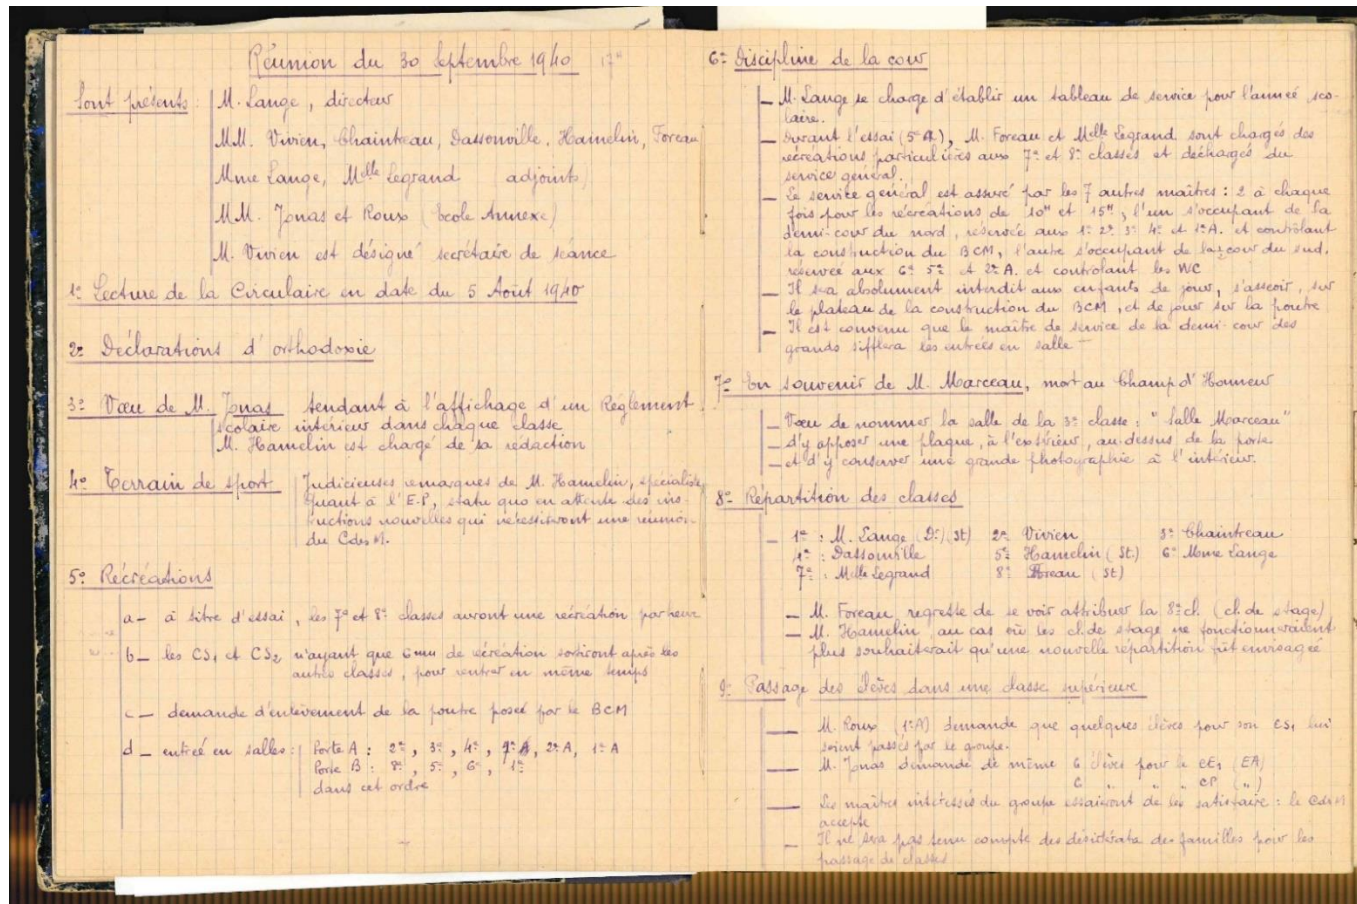 Réunion du 30 Septembre 1940 17H
Sont présents : M. Lange, directeur
MM. Vivien, Chaintreau, Dassonville, Hamelin, Foreau
Mme Lange, Melle Legrand (adjoints)
MM. Jonas et Roux (Ecole Annexe)
M. Vivien est désigné secrétaire de séance
1º Lecture de la Circulaire en date du 5 Août 1940
2º Déclarations d'orthodoxie
3º Vœu de M. Jonas tendant à l'affichage d'un Réglement
scolaire intérieur dans chaque classe
M. Hamelin est chargé de sa rédaction
4º Terrain de sport Judicieuses remarques de M. Hamelin, spécialiste
quant à l'E.P, statu quo en attente des ins-
tructions nouvelles qui nécessiteront une réunion
du CdesM.
5º Récréations
a - à titre d'essai, les 7e et 8e classes auront une récréation par heure
b - les CS1 et CS2 n'ayant que 6mn de récréation sortiront après les
autres classes, pour rentrer en même temps
c - demande d'enlèvement de la poutre posée par le BCM
d - entrée en salles : Porte A : 2e, 3e, 4e, 7e, 2e A, 1e A
Porte B : 8e, 5e, 6e, 1e
dans cet ordre
6º Discipline de la cour
- M. Lange se charge d'établir un tableau de service pour l'année sco-
laire.
- Durant l'essai (5º A), M. Foreau et Melle Legrand sont chargés des
récréations particulières aux 7e et 8e classes et déchargés du
service général.
- Le service général est assuré par les 7 autres maîtres : 2 à chaque
fois pour les récréations de 10H et 15H, l'un s'occupant de la
demi-cour du nord, réservée aux 1e 2e 3e 4e et 1e A. et contrôlant
la construction du BCM, l'autre s'occupant de la ½ cour du sud,
réservée aux 6e 5e et 2e A. et contrôlant les WC
- Il sera absolument interdit aux enfants de jouer, s'asseoir, sur
le plateau de la construction du BCM, et de jouer sur la poutre
- Il est convenu que le maître de service de la demi-cour des
grands sifflera les entrées en salle -
7º En souvenir de M. Marceau, mort au Champ d'Honneur
- Vœu de nommer la salle de la 3e classe : "Salle Marceau"
- d'y apposer une plaque, à l'extérieur, au dessus de la porte
- et d'y conserver une grande photographie à l'intérieur.
8º Répartition des classes
- 1e : M. Lange (Dr) (St) 2e Vivien 3e Chaintreau
4e : Dassonville 5e Hamelin (St.) 6e Mme Lange
7e : Melle Legrand 8e Foreau (St)
- M. Foreau regrette de se voir attribuer la 8e cl. (cl. de stage)
- M. Hamelin, au cas où les cl. de stage ne fonctionneraient
plus souhaiterait qu'une nouvelle répartition fût envisagée
9º Passage des élèves dans une classe supérieure
- M. Roux (1e A) demande que quelques élèves pour son CS1 lui
soient passés par le groupe.
- M. Jonas demande de même 6 élèves pour le CE1 (EA)
6 " " " CP (")
- Les maîtres intéressés du groupe essaieront de les satisfaire : le CdesM
accepte
- Il ne sera pas tenu compte des désidérata des familles pour les
passage de classes